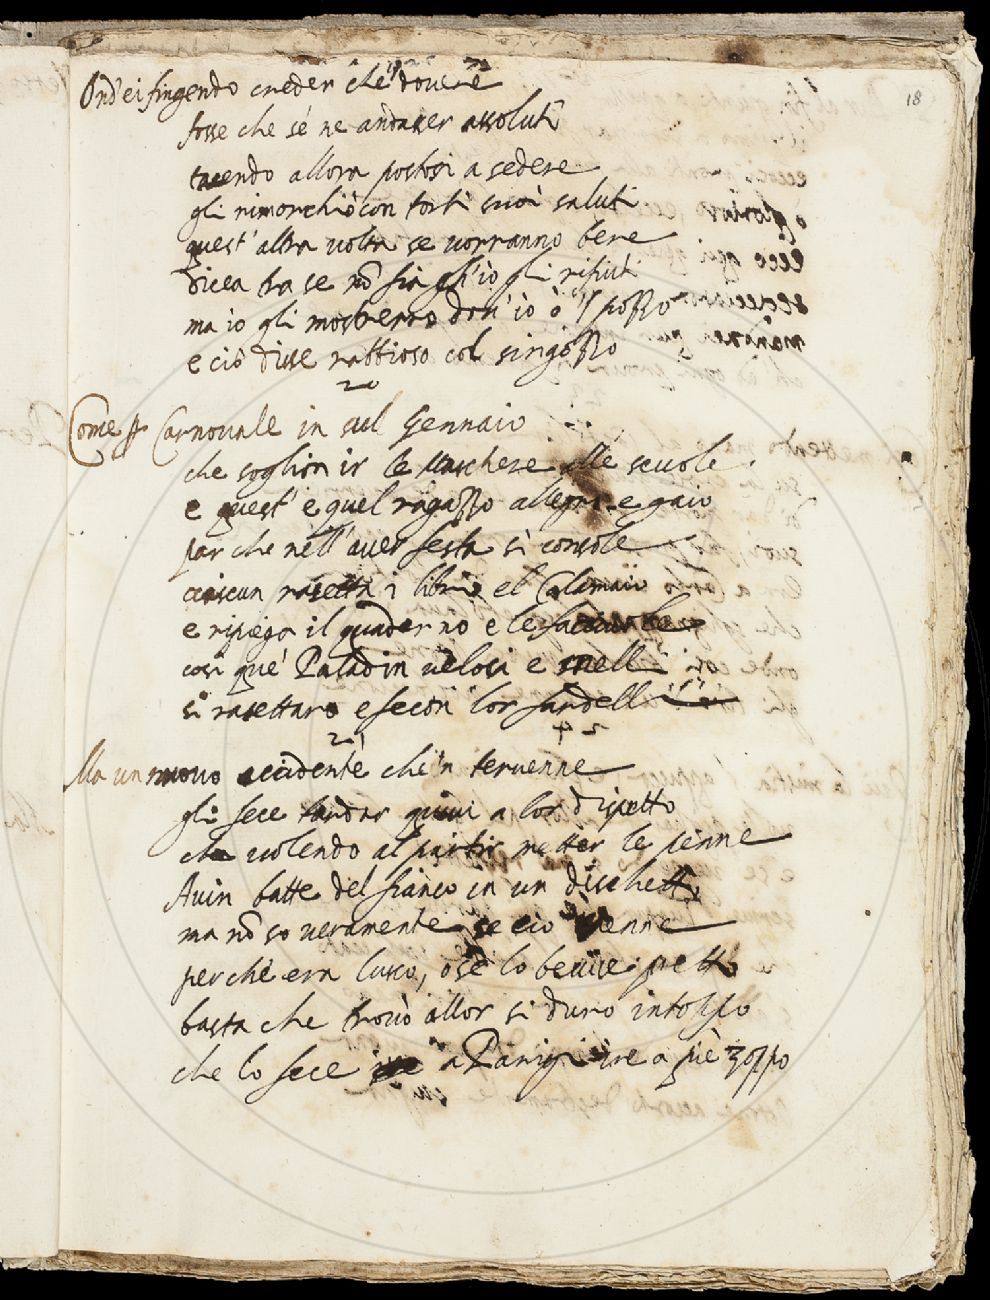 18
Ond'ei fingendo creder che'l douere
fosse che sé ne andasser assoluti
tacendo allora postosi a sedere
gli rimorchiò con torti suoi saluti
quest' altra uolta se uorranno bere
dicea tra se nõ sia ch'io gli rifiuti
ma io gli mosterrò dou' io ò 'l pozzo
e ciò disse rabbioso col singozzo
20
Come Carnouale in sul Gennaio
che soglion ir le Maschere alle scuole
e quest' e quel ragazzo allegro e gaio
par che nell'auer festa si console
ciascun rasetta i libri el Calamaio
e ripiega il quaderno e le
cosi que' Paladin uelosi e snelli
si rasettaro e fecon lor fardelli
21
Ma un nuouo accidente che'n teruenne
gli fece tardar quiui a lor dispetto
che uolendo al partir metter le penne
Auin batte del fianco in un deschetto
ma nõ so ueramente se ciò uenne
perche era lusco, o se lo beuue pretto
basta che trouò allor si duro intoppo
che lo fece a Parigi ire a piè zoppo